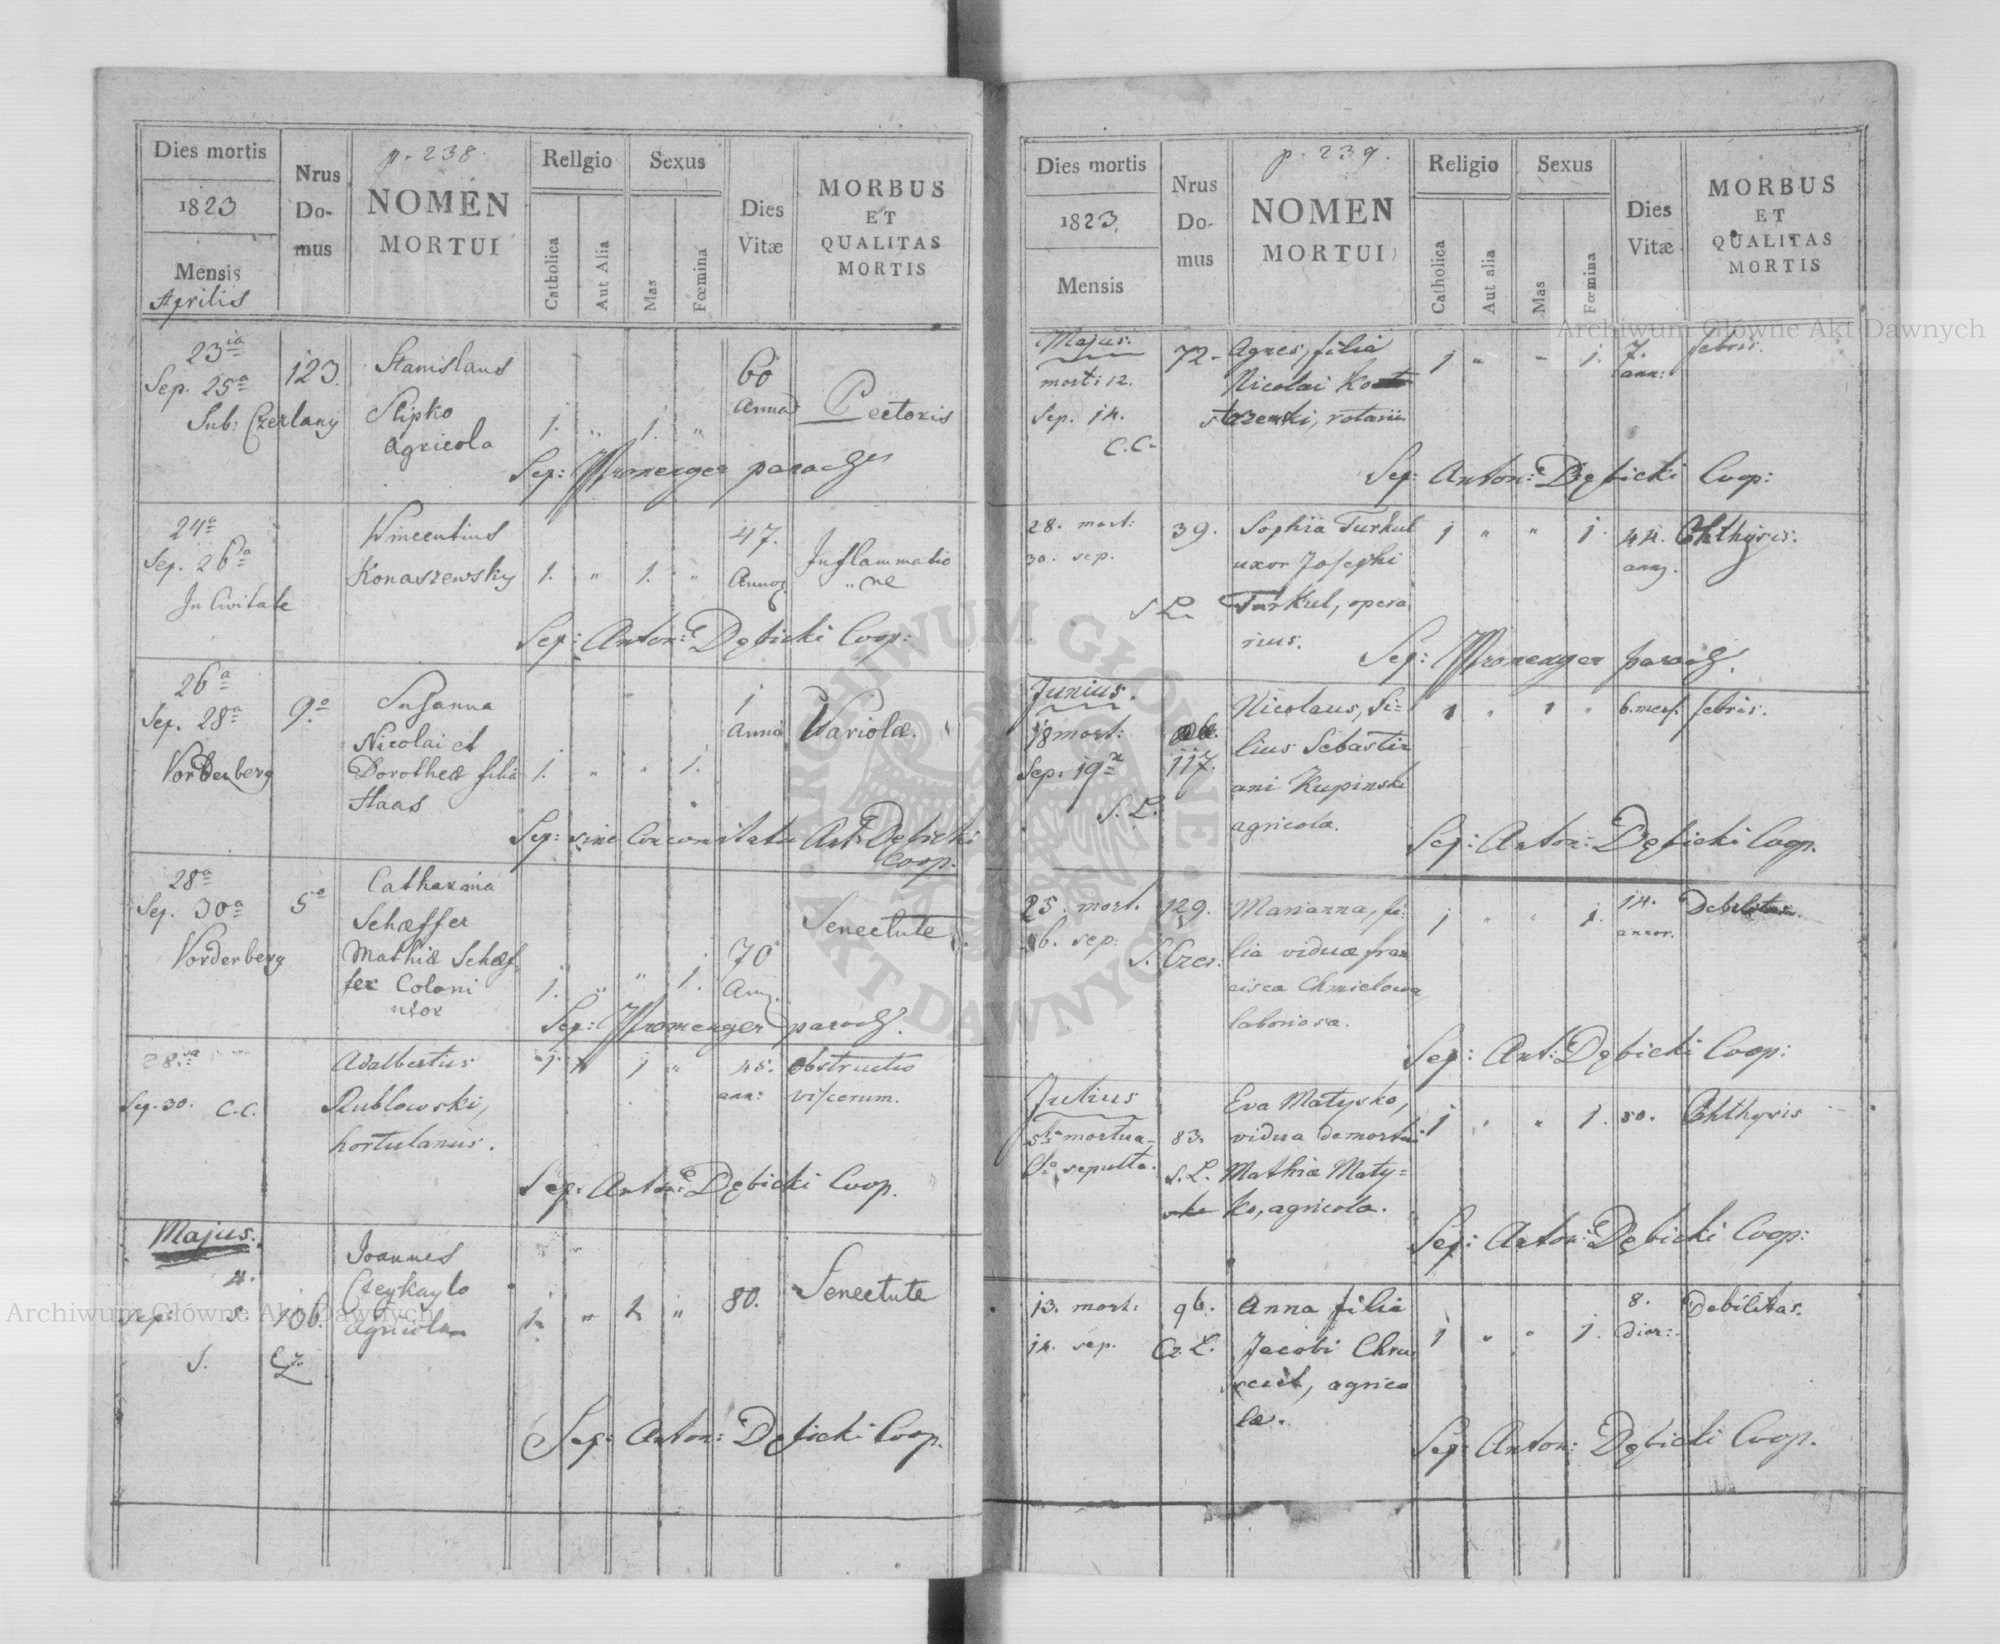 Dies mortis
1823
Mensis
Aprilis
Nrus
Do-
mus
p. 238.
NOMEN
MORTUI
Rellgio
Catholica
Aut Alia
Sexus
Mas
Fœmina
Dies
Vitæ
MORBUS
ET
QUALITAS
MORTIS
23ia
Sep. 25a
Sub: Czerlany
123.
Stanislaus
Slipko
agricola
1. " 1. "
60
Pectoris
Sep:
24a
Sep. 26a
In Civitate
Wincentius
Konaszewsky
1. " 1. "
47.
Inflammatio
" ne
Sep: Anton: Dębicki Coop:
26a
Sep. 28a
Vorderberg
9o
Susanna
Nicolai et
Dorotheæ filia
Haas
1. " " 1.
1
Anni
Variolæ.
Sep: sine Concomitatu Ant: Dębicki
Coop.
28a
Sep. 30a
Vorderberg
5o
Catharina
Schæffer
Mathiæ Schæf
fer Coloni
uxor
1. " " 1.
70
Senectute
Sep:
28va
Sep. 30. C.C.
Adalbertus
Rublowski,
hortulanus.
1 " 1 "
45.
ann:
Obstructio
viscerum.
Sep: Anton: Dębicki Coop.
Majus.
4.
sep: 5.
S. Cz.
106.
Joannes
Czeykaylo
agricola
1. " 1. "
80.
Senectute
Sep: Anton: Dębicki Coop.
Dies mortis
1823.
Mensis
Nrus
Do-
mus
p. 239.
NOMEN
MORTUI
Religio
Catholica
Aut alia
Sexus
Mas
Fœmina
Dies
Vitæ
MORBUS
ET
QUALITAS
MORTIS
Majus.
mort: 12.
Sep. 14.
C.C.
72.
Agnes, filia
Nicolai
rotarii
1 " " 1.
7.
ann:
febris.
Sep: Anton: Dębicki Coop:
28. mort:
30. sep.
S L.
39.
Sophia Turkul
uxor Josephi
Turkul, opera
rius.
1 " " 1.
44.
Phthysis.
Sep:
Junius.
18 mort:
Sep. 19
S. L.
117.
Nicolaus, fi-
lius Sebasti
ani Kupinski
agricola.
1 " 1 "
6. mens.
febris.
Sep: Anton: Dębicki Coop.
25. mort.
26. sep:
S. Czer:
129.
Marianna, fi-
lia viduæ fran
cisca Chmielowa
laboriosa.
1 " " 1.
14.
annor.
Debilitas.
Sep: Ant: Dębicki Coop:
Julius
mortua
sepulta.
83.
S. L.
Eva Matysko,
vidua demortui
Mathiæ Maty-
ko, agricola.
1 " " 1.
50.
Phthysis
Sep: Anton: Dębicki Coop:
13. mort:
14. sep.
96.
Cz. L.
Anna filia
Jacobi Chru
agrico
læ.
1 " " 1.
8.
dier:
Debilitas.
Sep: Anton: Dębicki Coop.
Archiwum Główne Akt Dawnych
Archiwum Główne Akt Dawnych
ARCHIWUM GŁÓWNE AKT DAWNYCH